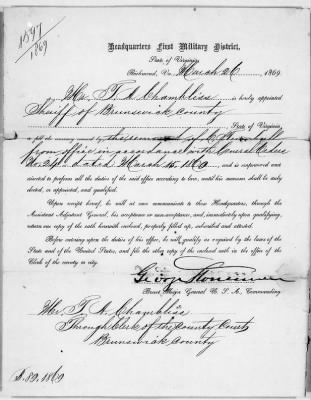 1597
1869
Headquarters First Military District,
State of Virginia,
Richmond, Va., March 26 1869.
Mr. T. A. Chambliss is hereby appointed
Sheriff of Brunswick County
State of Virginia,
to fill the vacancy caused by the removal of
from office in accordance with General Orders
No. 24 dated March 15, 1869, and is empowered and
directed to perform all the duties of the said office according to law, until his successor shall be duly
elected, or appointed, and qualified.
Upon receipt hereof, he will at once communicate to these Headquarters, through the
Assistant Adjutant General, his acceptance or non-acceptance, and, immediately upon qualifying,
return one copy of the oath herewith enclosed, properly filled up, subscribed and attested.
Before entering upon the duties of his office, he will qualify as required by the laws of the
State and of the United States, and file the other copy of the enclosed oath in the office of the
Clerk of the county or city.
Geo Stoneman
Brevet Major General U. S. A., Commanding
Mr. T. A. Chambliss
Through Clerk of the County Court
Brunswick County
S. 89. 1869